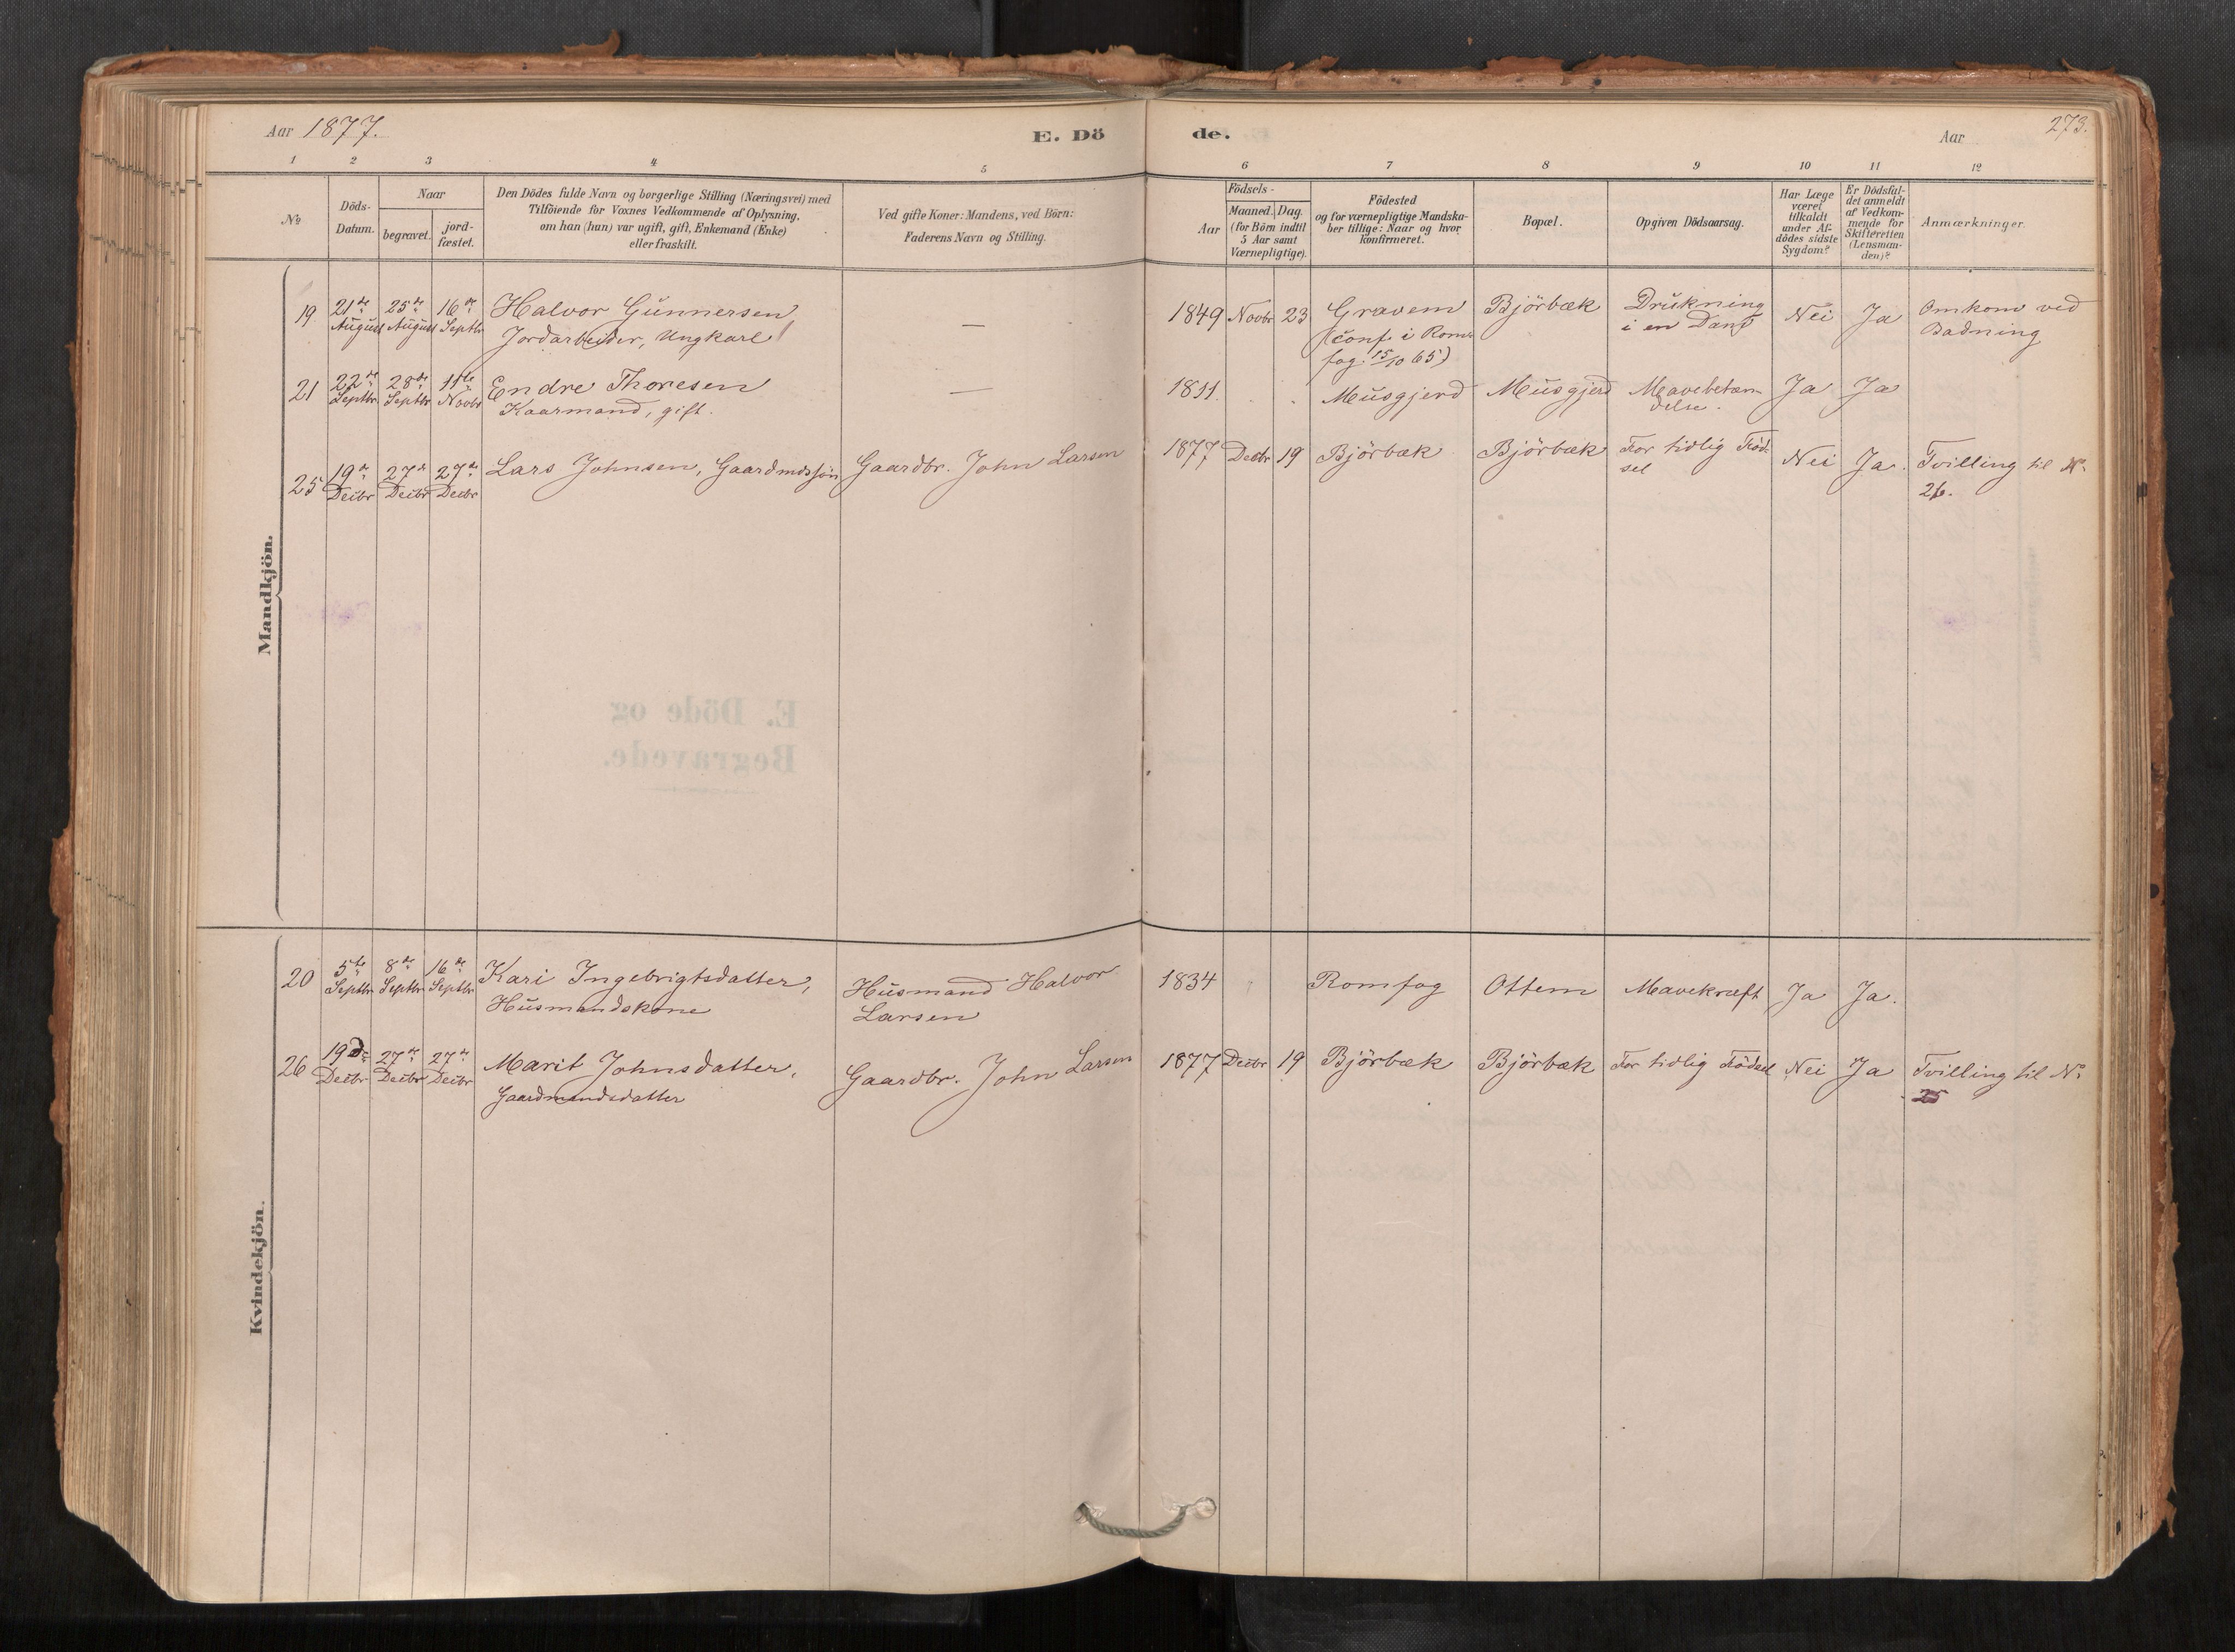 Aar 1877. E. Dö de. Aar 273.
1 2 3 4 5 6 7 8 9 10 11 12
No
Döds-
Datum.
Naar
begravet.
jord-
fæstet.
Den Dödes fulde Navn og borgerlige Stilling (Næringsvei) med
Tilföiende for Voxnes Vedkommende af Oplysning,
om han (hun) var ugift, gift, Enkemand (Enke)
eller fraskilt.
Ved gifte Koner: Mandens, ved Börn:
Faderens Navn og Stilling.
Födsels-
Aar
Maaned. Dag.
(for Börn indtil
5 Aar samt
Værnepligtige).
Födested
og for værnepligtige Mandska-
ber tillige: Naar og hvor
konfirmeret.
Bopæl.
Opgiven Dödsaarsag.
Har Læge
været
tilkaldt
under Af-
dödes sidste
Sygdom?
Er Dödsfal-
det anmeldt
af Vedkom-
mende for
Skifteretten
(Lensman-
den)?
Anmærkninger.
Mandkjön.
19 21de 25de 16de Halvor Gunnersen — 1849 Novbr 23 Gravem Björbæk Drukning Nei Ja Omkom ved
August August Septbr Jordarbeider, Ungkarl (conf. i Roms- i en Dam Badning
fog. 15/10 65)
21 22de 28de 11te Endre Thoresen — 1811 Musgjerd Musgjerd Mavebetæn- Ja Ja
Septbr Septbr Novbr Kaarmand, gift. delse.
25 19de 27de 27de Lars Johnsen, Gaardmdssön Gaardbr. John Larsen 1877 Decbr 19 Björbæk Björbæk For tidlig Föd- Nei Ja. Tvilling til No
Decbr Decbr Decbr sel 26.
E. Döde og
Begravede.
Kvindekjön.
20 5te 8de 16de Kari Ingebrigtsdatter, Husmand Halvor 1834 Romfog Ottem Mavekræft Ja Ja.
Septbr Septbr Septbr Husmandskone Larsen
26 19de 27de 27de Marit Johnsdatter, Gaardbr. John Larsen 1877 Decbr 19 Björbæk Björbæk For tidlig Födsel Nei Ja Tvilling til No
Decbr Decbr Decbr Gaardmandsdatter 25